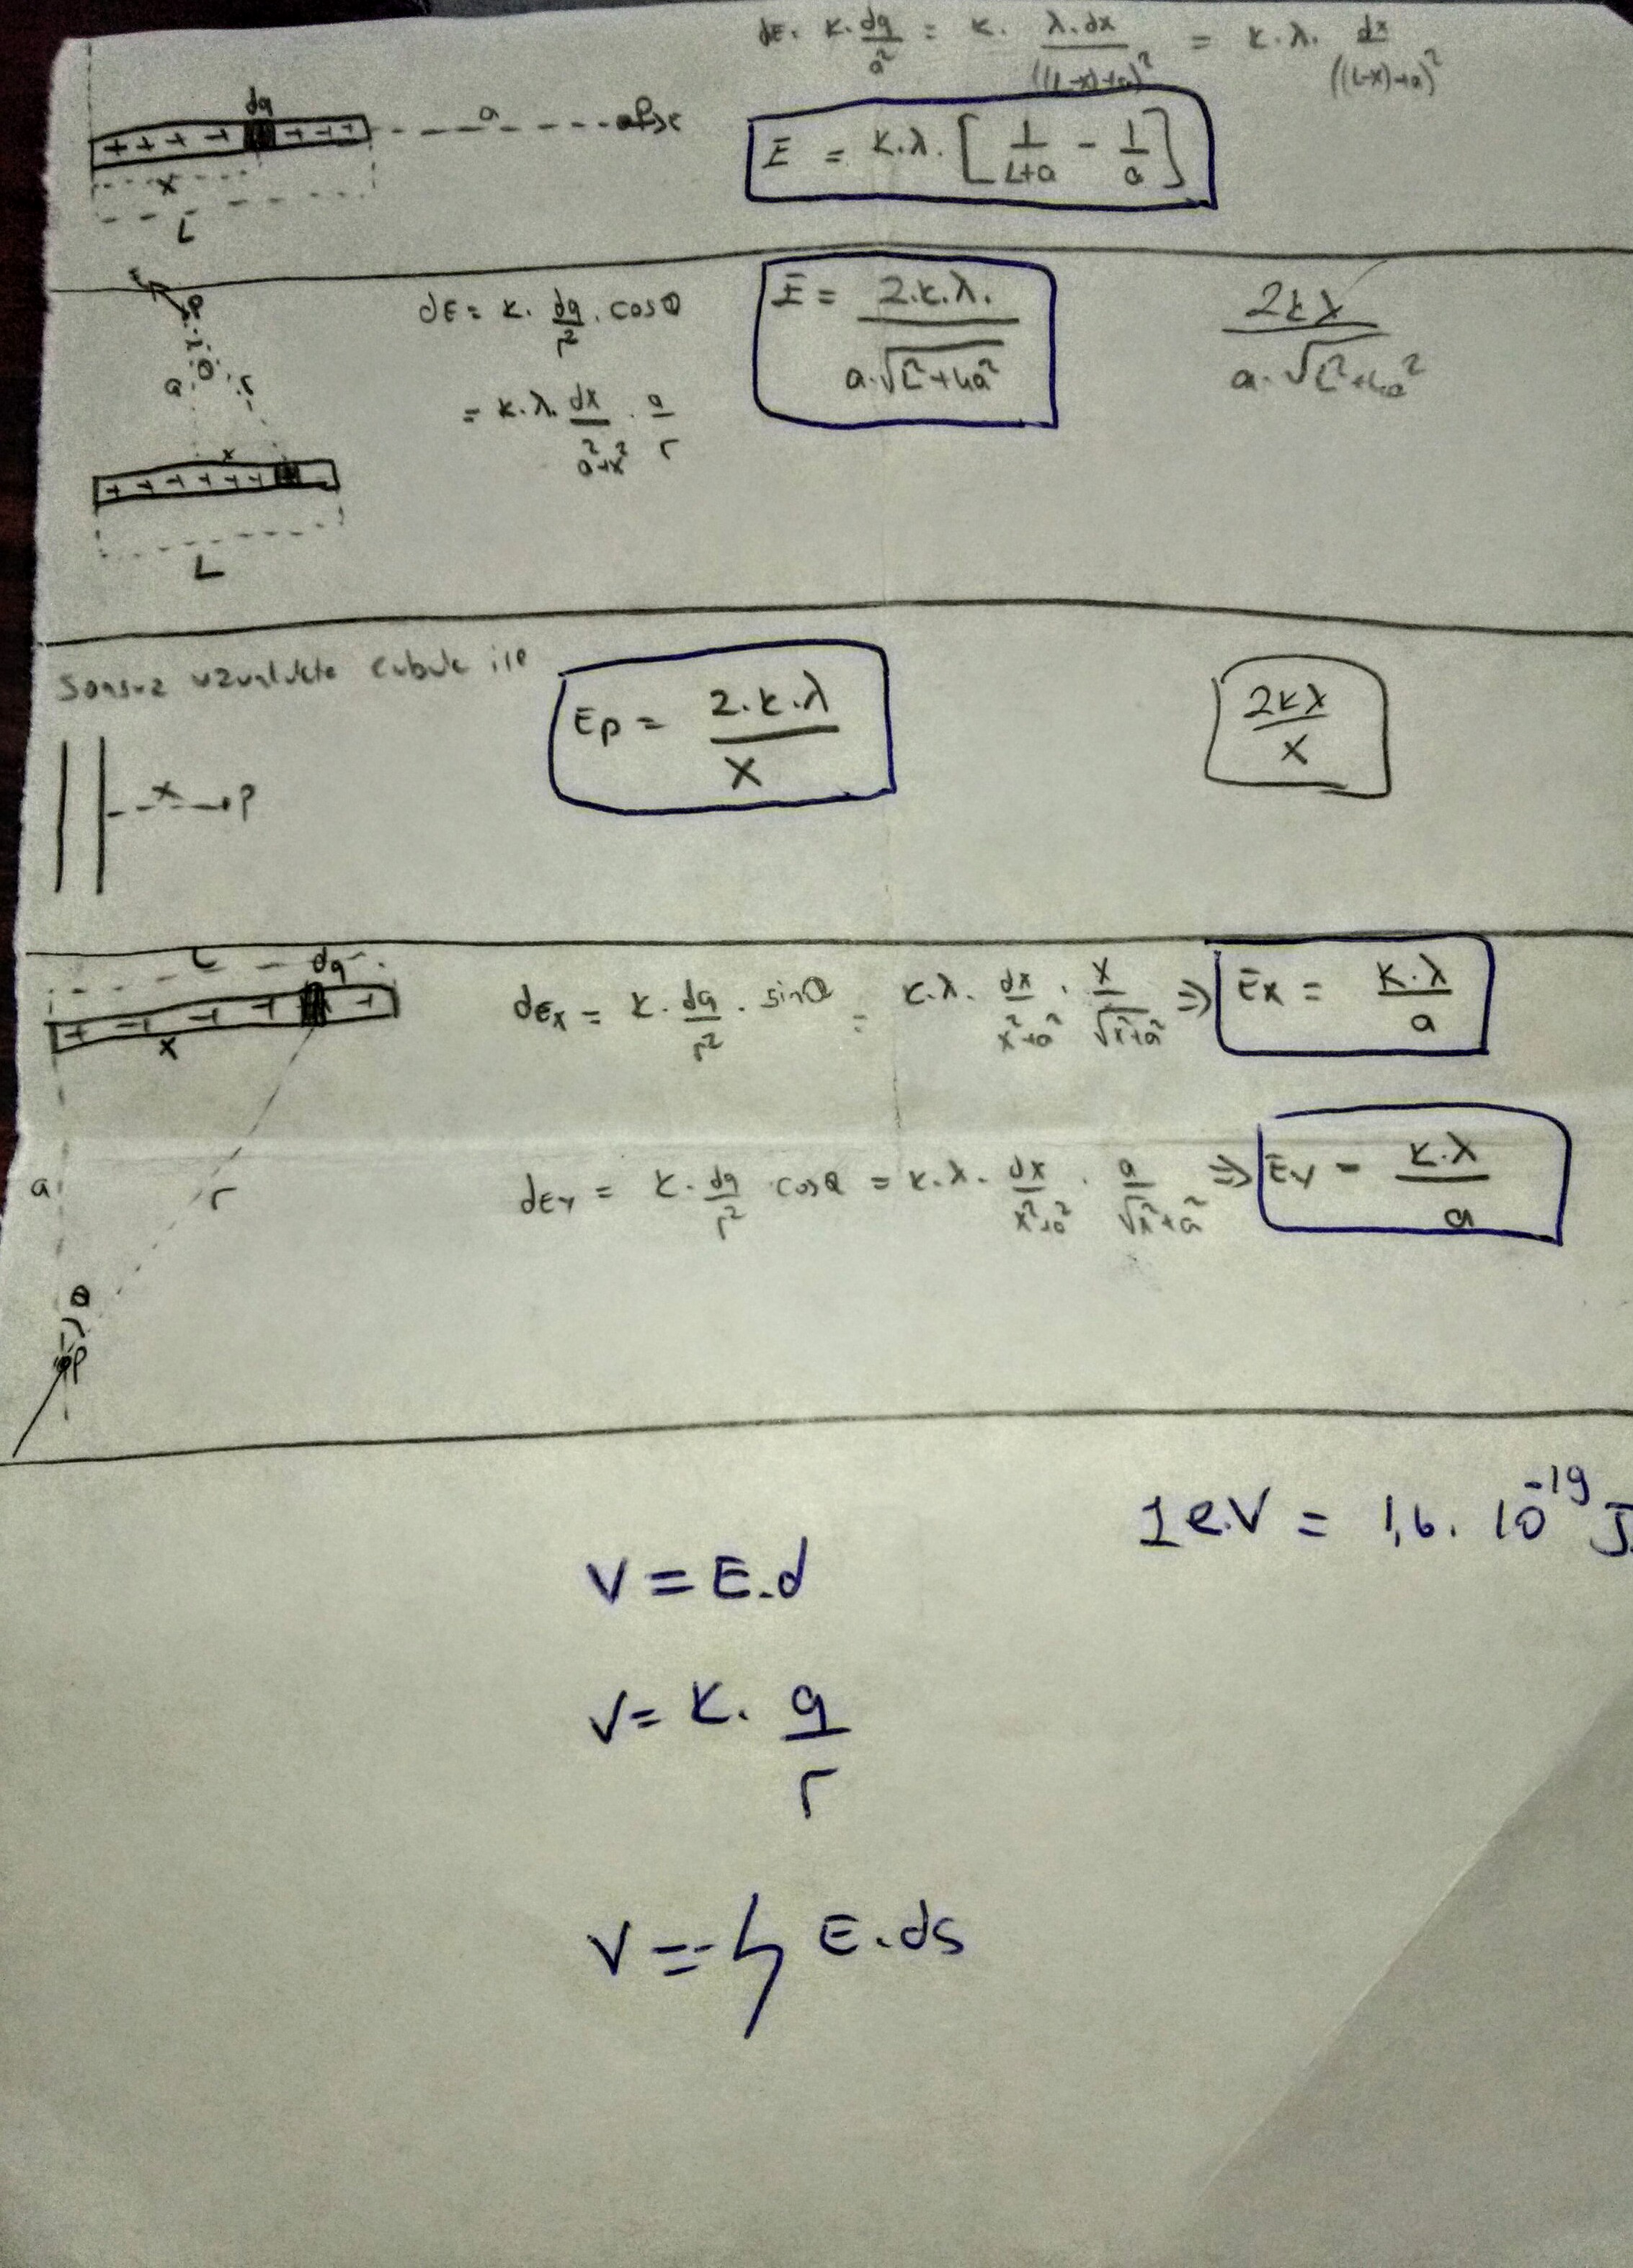 dE = k. dq/a² = k. λ.dx/((L-x)+a)² = k.λ. dx/((L-x)+a)²
dq
+ + + + + + +
a
x
L
E = k.λ. [1/(L+a) - 1/a]
E
θ
a
r
dE = k. dq/r² . cosθ
= k.λ. dx/(a²+x²) . a/r
E = 2.k.λ./(a.√(L²+4a²))
2kλ/(a.√(L²+4a²))
x
+ + + + + + +
L
Sonsuz uzunlukta çubuk ile
x P
Ep = 2.k.λ/x
2kλ/x
L dq
+ + + + +
x
a
r
θ
P
dEx = k. dq/r² . sinθ = k.λ. dx/(x²+a²) . x/√(x²+a²) ⇒ Ex = k.λ/a
dEy = k. dq/r² cosθ = k.λ. dx/(x²+a²) . a/√(x²+a²) ⇒ Ey = k.λ/a
1 e.V = 1,6. 10⁻¹⁹ J
V = E.d
V = k. q/r
V = -∫ E.ds